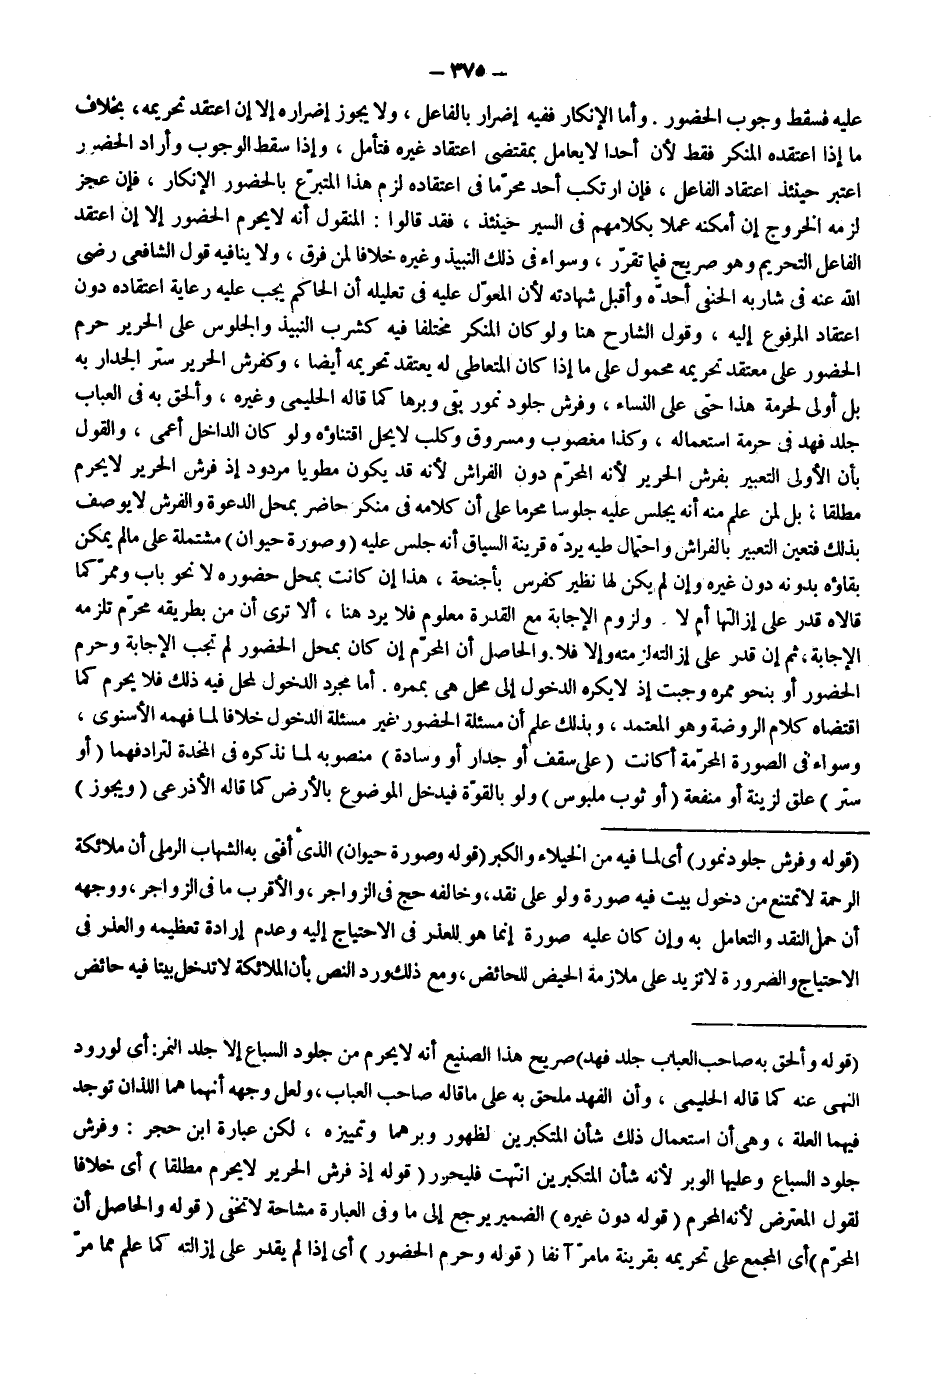 – ٣٧٥ –
عليه فسقط وجوب الحضور . وأما الإنكار ففيه إضرار بالفاعل ، ولا يجوز إضراره إلا إن اعتقد تحريمه، بخلاف
ما إذا اعتقده المنكر فقط لأن أحدا لايعامل بمقتضى اعتقاد غيره فتأمل ، وإذا سقط الوجوب وأراد الحضور
اعتبر حينئذ اعتقاد الفاعل ، فإن ارتكب أحد محرّما فى اعتقاده لزم هذا المتبرّع بالحضور الإنكار ، فإن عجز
لزمه الخروج إن أمكنه عملا بكلامهم فى السير حينئذ ، فقد قالوا : المنقول أنه لايحرم الحضور إلا إن اعتقد
الفاعل التحريم وهو صريح فيما تقرّر ، وسواء فى ذلك النبيذ وغيره خلافا لمن فرق ، ولا ينافيه قول الشافعى رضى
الله عنه فى شاربه الحنفى أحدّه وأقبل شهادته لأن المعوّل عليه فى تعليله أن الحاكم يجب عليه رعاية اعتقاده دون
اعتقاد المرفوع إليه ، وقول الشارح هنا ولو كان المنكر مختلفا فيه كشرب النبيذ والجلوس على الحرير حرم
الحضور على معتقد تحريمه محمول على ما إذا كان المتعاطى له يعتقد تحريمه أيضا ، وكفرش الحرير ستر الجدار به
بل أولى لحرمة هذا حتى على النساء ، وفرش جلود نمور بقى وبرها كما قاله الحليمى وغيره ، وألحق به فى العباب
جلد فهد فى حرمة استعماله ، وكذا مغصوب ومسروق وكلب لايحل اقتناؤه ولو كان الداخل أعمى ، والقول
بأن الأولى التعبير بفرش الحرير لأنه المحرّم دون الفراش لأنه قد يكون مطويا مردود إذ فرش الحرير لايحرم
مطلقا ؛ بل لمن علم منه أنه يجلس عليه جلوسا محرما على أن كلامه فى منكر حاضر بمحل الدعوة والفرش لايوصف
بذلك فتعين التعبير بالفراش واحتمال طيه يردّه قرينة السياق أنه جلس عليه (وصورة حيوان) مشتملة على مالم يمكن
بقاؤه بدونه دون غيره وإن لم يكن لها نظير كفرس بأجنحة ، هذا إن كانت بمحل حضوره لا نحو باب وممرّ كما
قالاه قدر على إزالتها أم لا . ولزوم الإجابة مع القدرة معلوم فلا يرد هنا ، ألا ترى أن من بطريقه محرّم تلزمه
الإجابة، ثم إن قدر على إزالته لزمته وإلا فلا. والحاصل أن المحرّم إن كان بمحل الحضور لم تجب الإجابة وحرم
الحضور أو بنحو ممره وجبت إذ لايكره الدخول إلى محل هى بممره . أما مجرد الدخول لمحل فيه ذلك فلا يحرم كما
اقتضاه كلام الروضة وهو المعتمد ، وبذلك علم أن مسئلة الحضور غير مسئلة الدخول خلافا لما فهمه الأسنوى ،
وسواء فى الصورة المحرّمة أكانت ( على سقف أو جدار أو وسادة ) منصوبه لما نذكره فى المخدة لترادفهما ( أو
ستر ) علق لزينة أو منفعة ( أو ثوب ملبوس ) ولو بالقوّة فيدخل الموضوع بالأرض كما قاله الأذرعى ( ويجوز )
(قوله وفرش جلود نمور) أى لما فيه من الخيلاء والكبر (قوله وصورة حيوان) الذى أفتى به الشهاب الرملى أن ملائكة
الرحمة لاتمتنع من دخول بيت فيه صورة ولو على نقد، وخالفه حج فى الزواجر ، والأقرب ما فى الزواجر ، ووجهه
أن حمل النقد والتعامل به وإن كان عليه صورة إنما هو للعذر فى الاحتياج إليه وعدم إرادة تعظيمه والعذر فى
الاحتياج والضرورة لاتزيد على ملازمة الحيض للحائض ، ومع ذلك ورد النص بأن الملائكة لاتدخل بيتا فيه حائض
(قوله وألحق به صاحب العباب جلد فهد) صريح هذا الصنيع أنه لايحرم من جلود السباع إلا جلد النمر: أى لورود
النهى عنه كما قاله الحليمى ، وأن الفهد ملحق به على ماقاله صاحب العباب ، ولعل وجهه أنهما هما اللذان توجد
فيهما العلة ، وهى أن استعمال ذلك شأن المتكبرين لظهور وبرهما وتمييزه ، لكن عبارة ابن حجر : وفرش
جلود السباع وعليها الوبر لأنه شأن المتكبرين انتهت فليحرر ( قوله إذ فرش الحرير لايحرم مطلقا ) أى خلافا
لقول المعترض لأنه المحرم ( قوله دون غيره ) الضمير يرجع إلى ما وفى العبارة مشاحة لاتخفى ( قوله والحاصل أن
المحرّم ) أى المجمع على تحريمه بقرينة مامرّ آنفا ( قوله وحرم الحضور ) أى إذا لم يقدر على إزالته كما علم مما مرّ